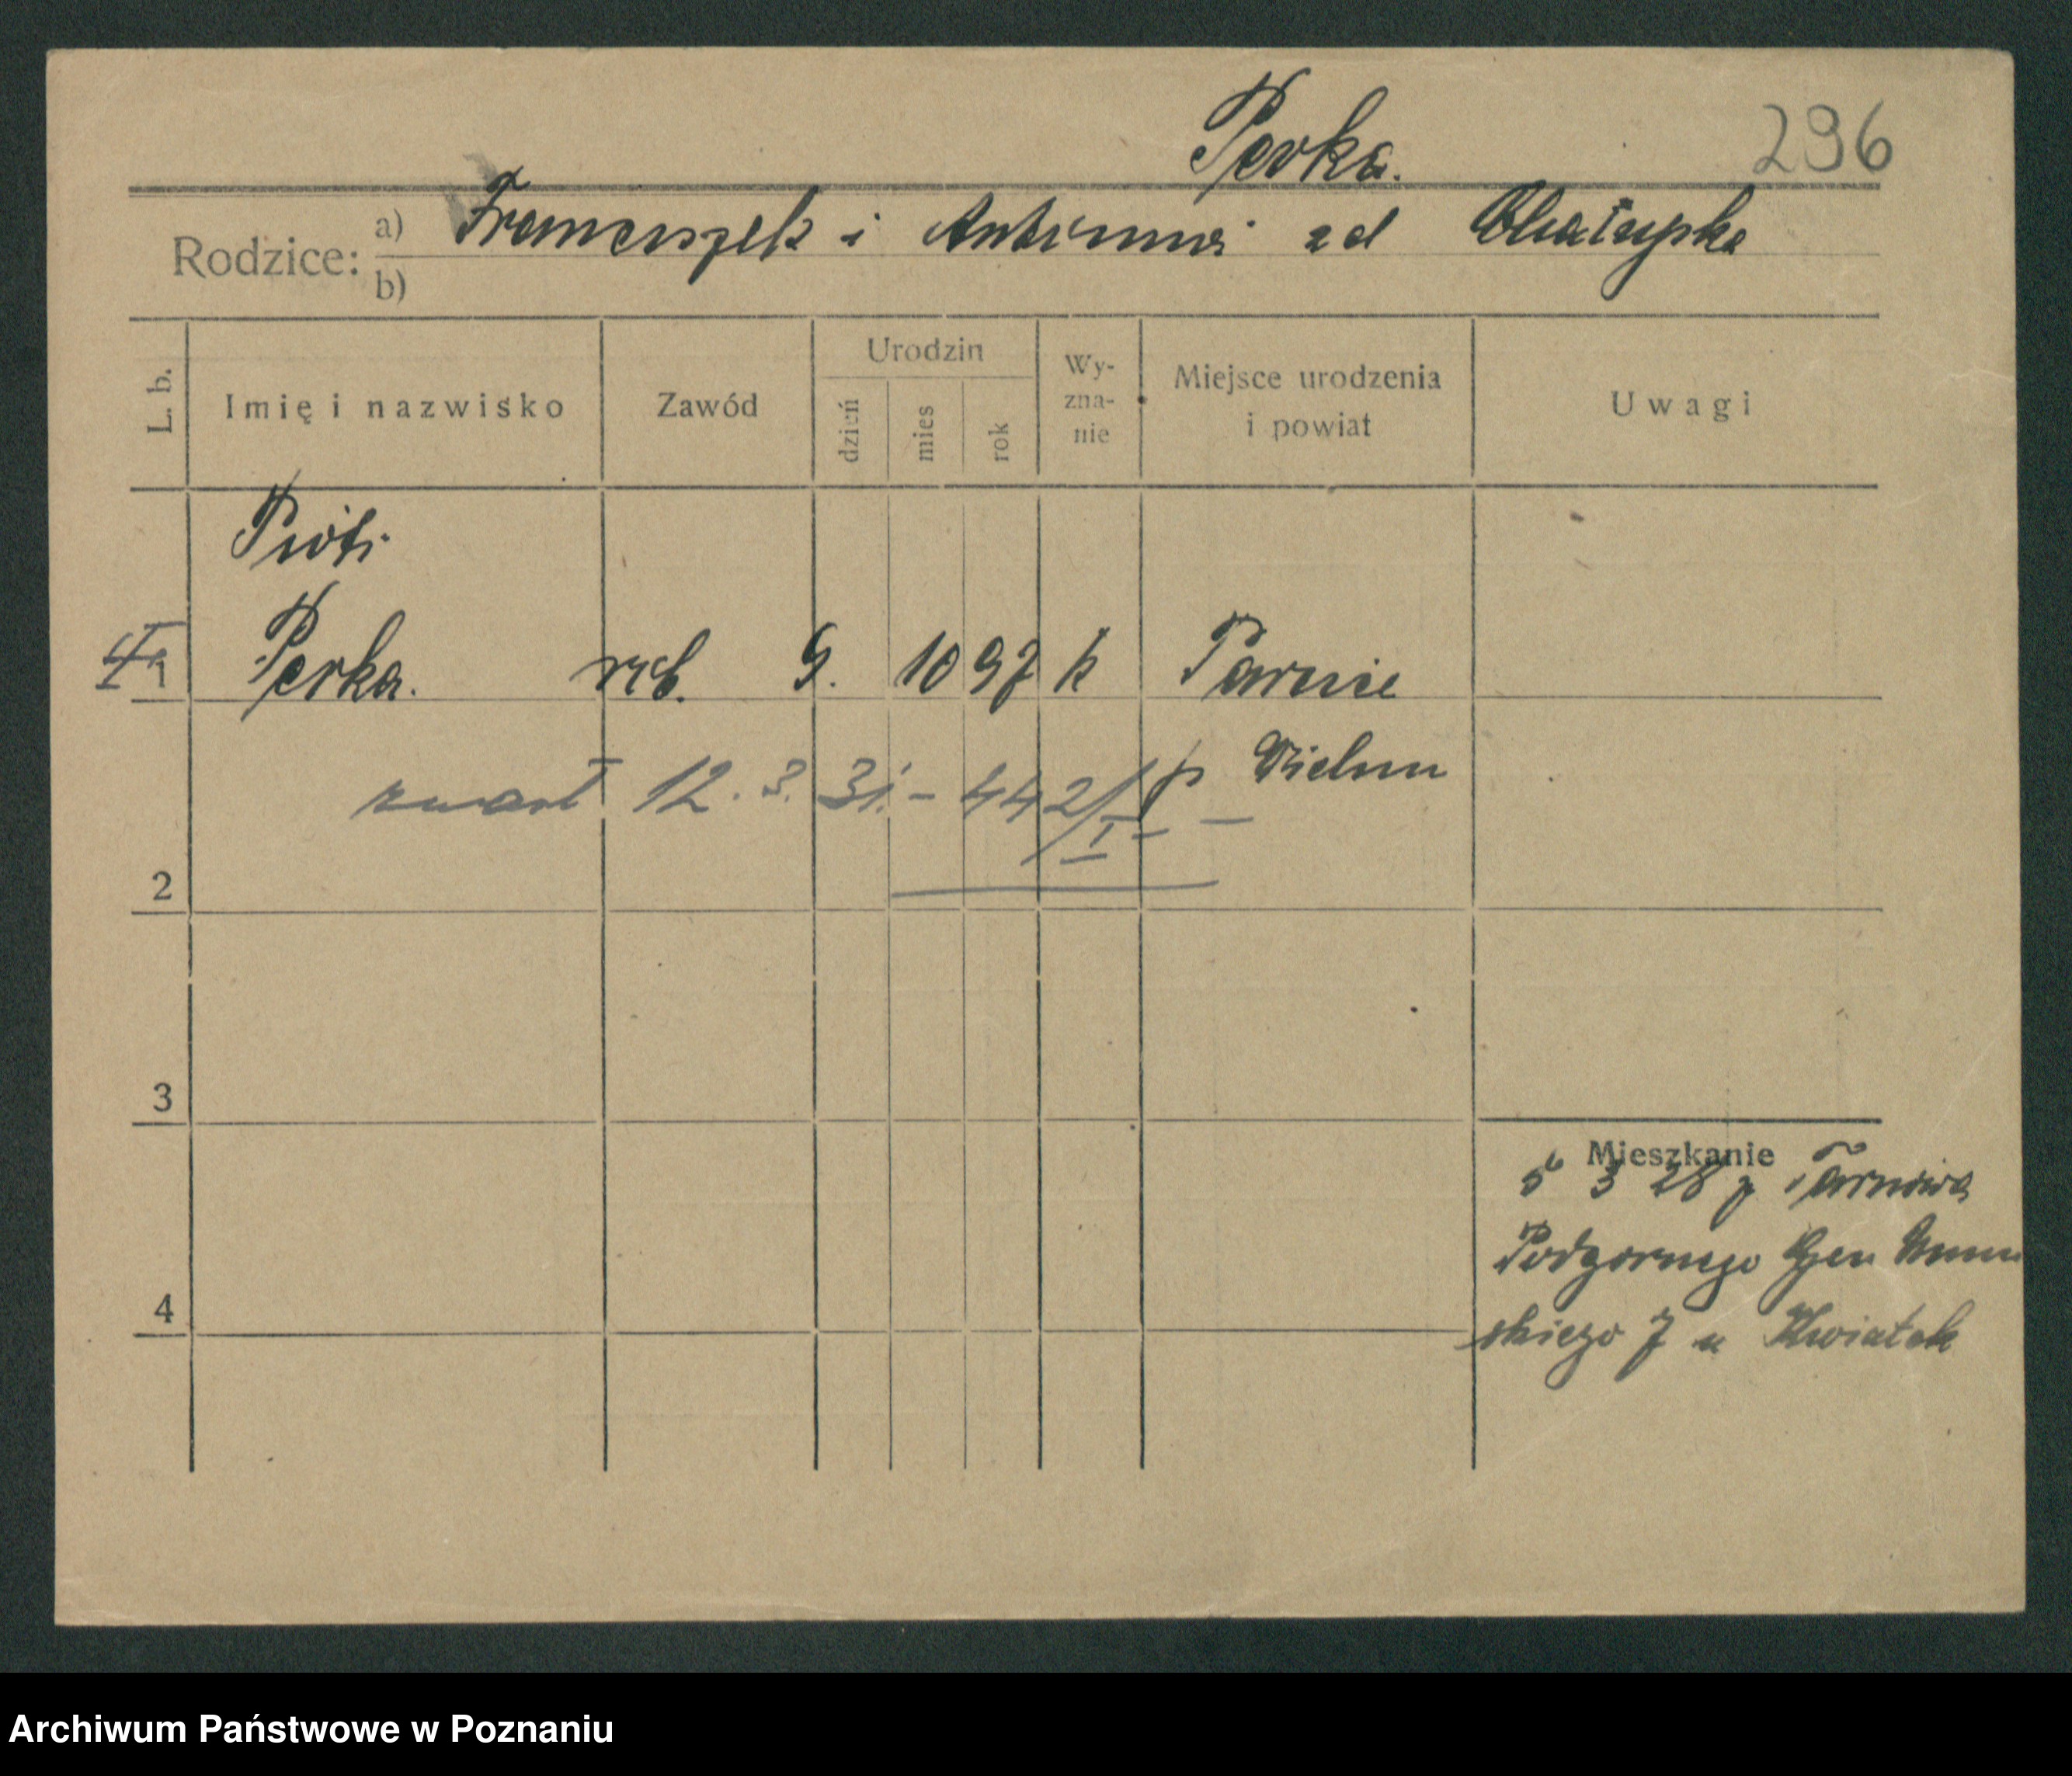 Perka.
296
Rodzice: a) Franciszek i Antonina zd Chałupka
b)
L. b.
Imię i nazwisko
Zawód
Urodzin
dzień
mies
rok
Wy-
zna-
nie
Miejsce urodzenia
i powiat
Uwagi
Piotr
1 Perka. rob. 9. 10 97 k Parcice
p Wieluń
zmarł 12. 3. 31. - 442/I
2
3
Mieszkanie
5 3 28 z Tarnowa
Podgornego Gen Umiń
4
skiego 7 u Kwiatek
Archiwum Państwowe w Poznaniu